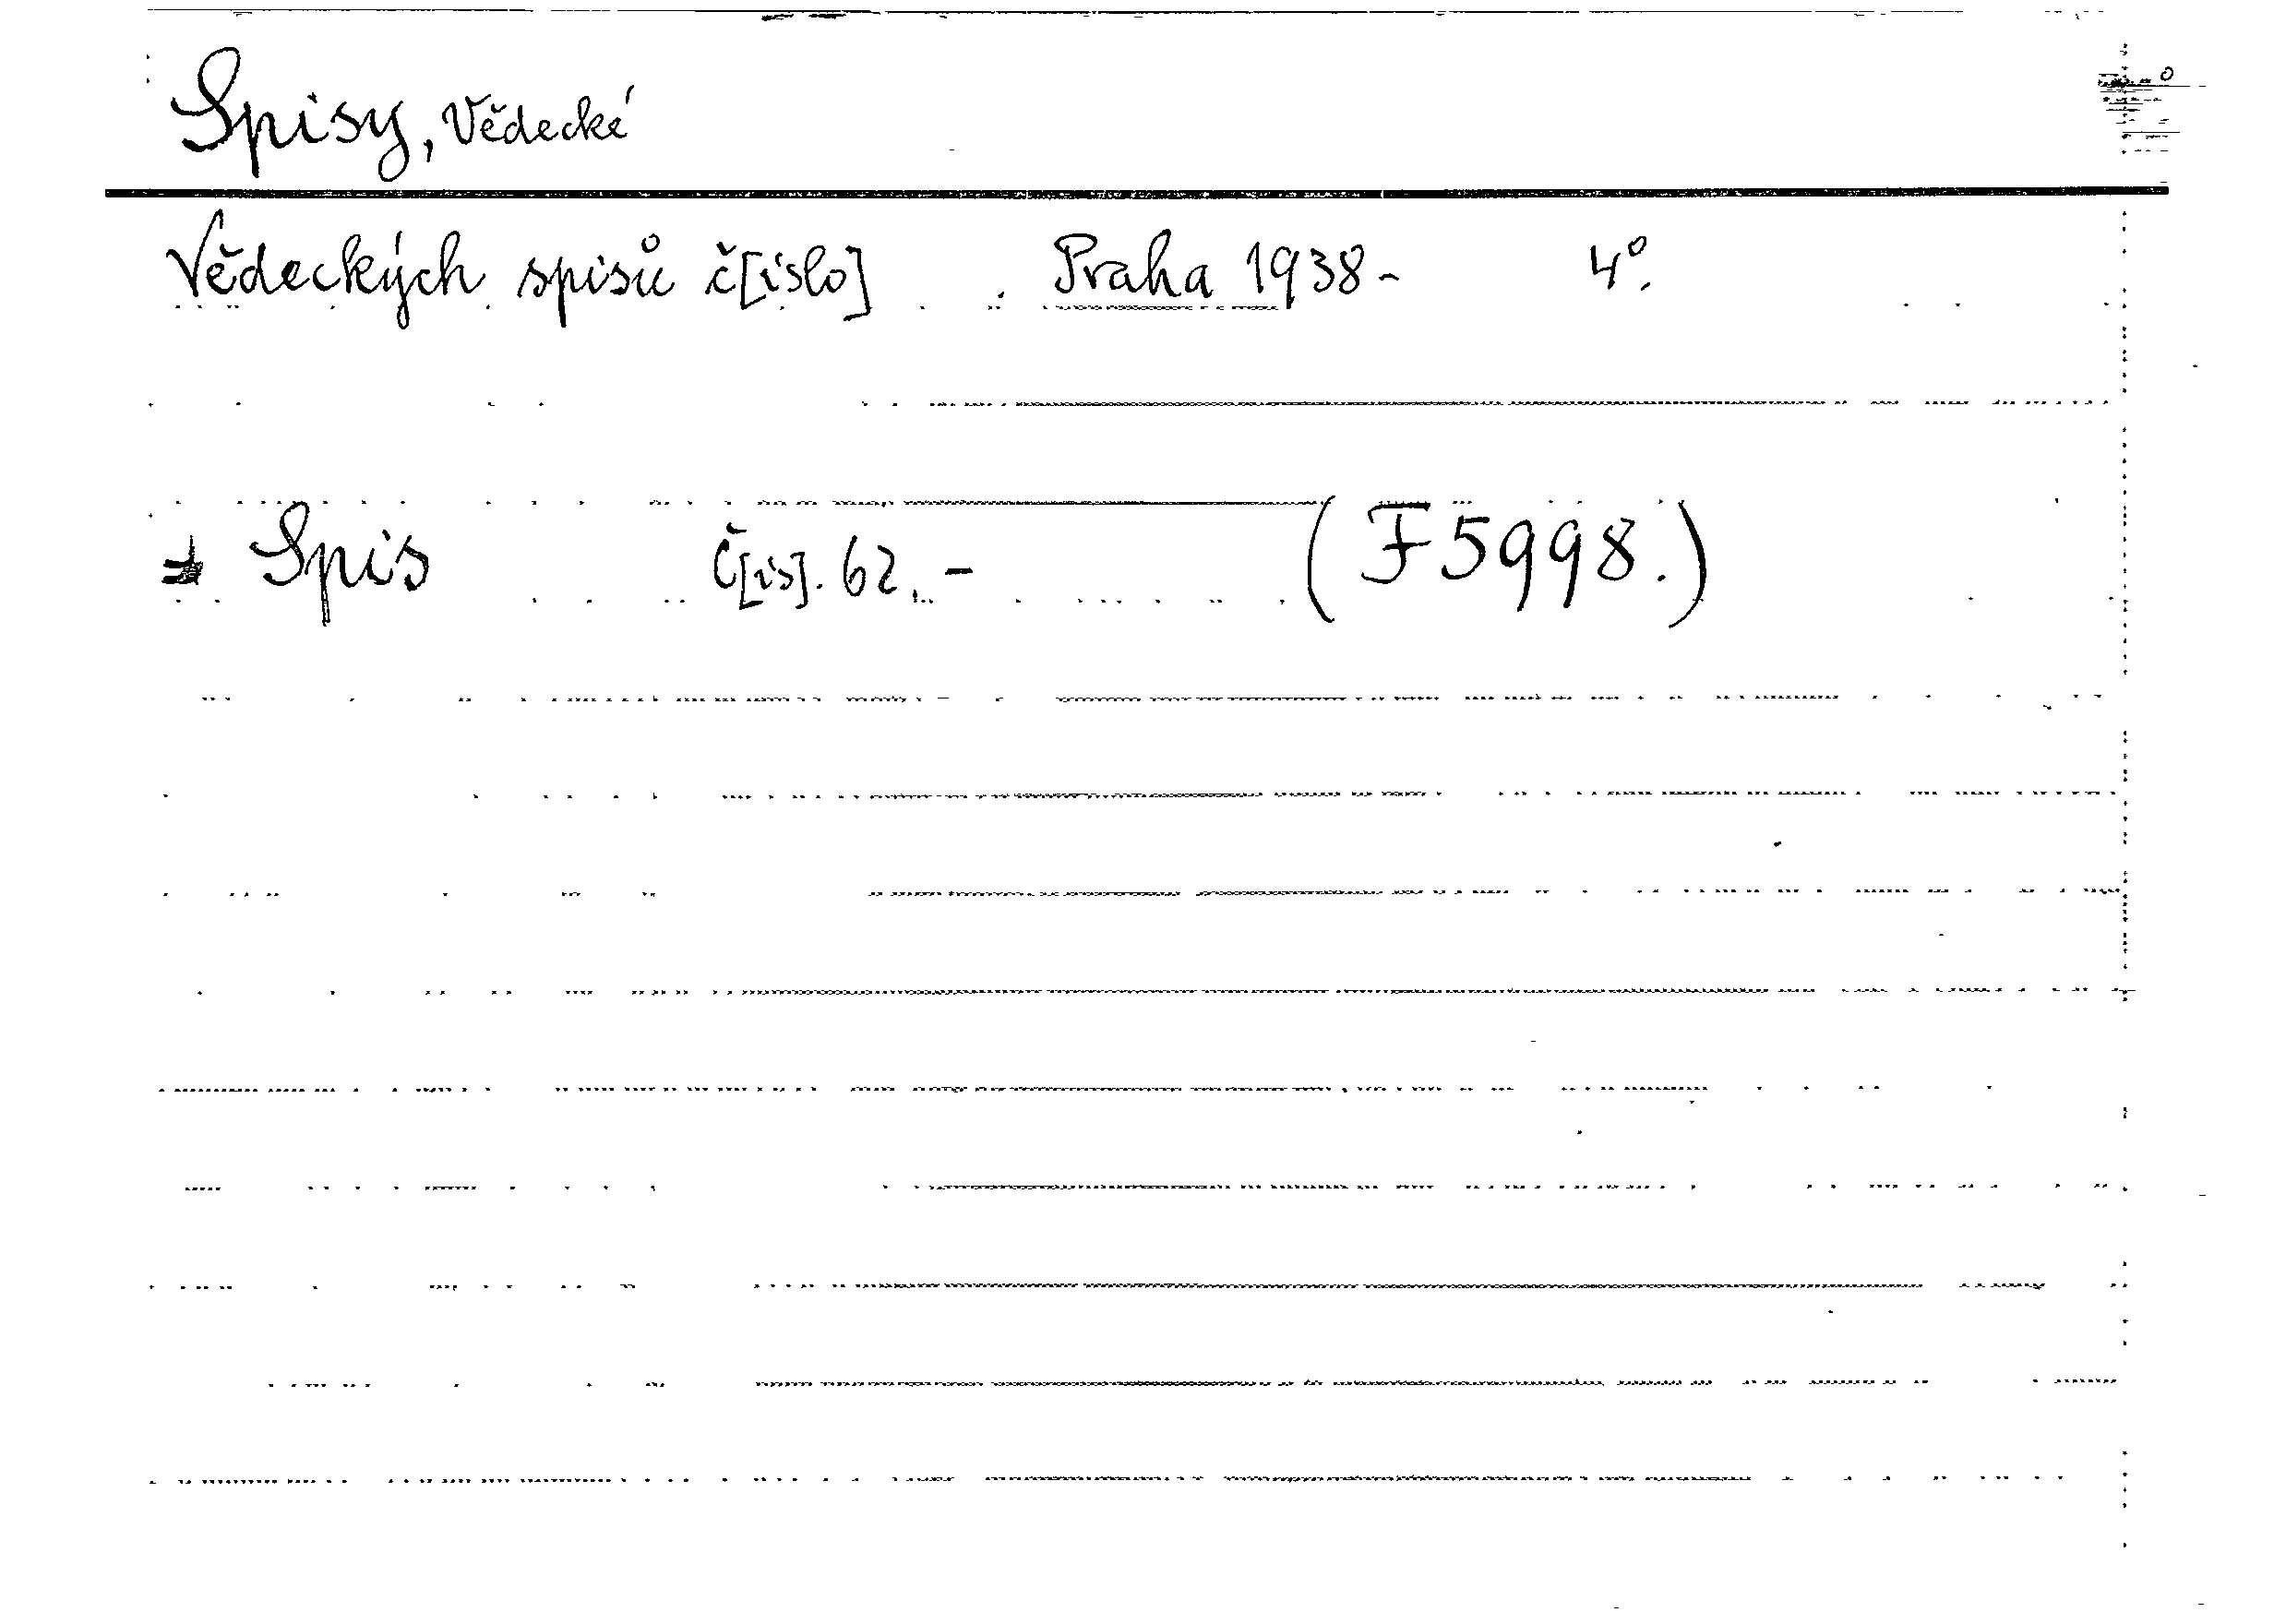 Spisy, Vědecké
Vědeckých spisů č[íslo] . Praha 1938- 4°.
Spis Č[ís]. 62.- (F 5998.)